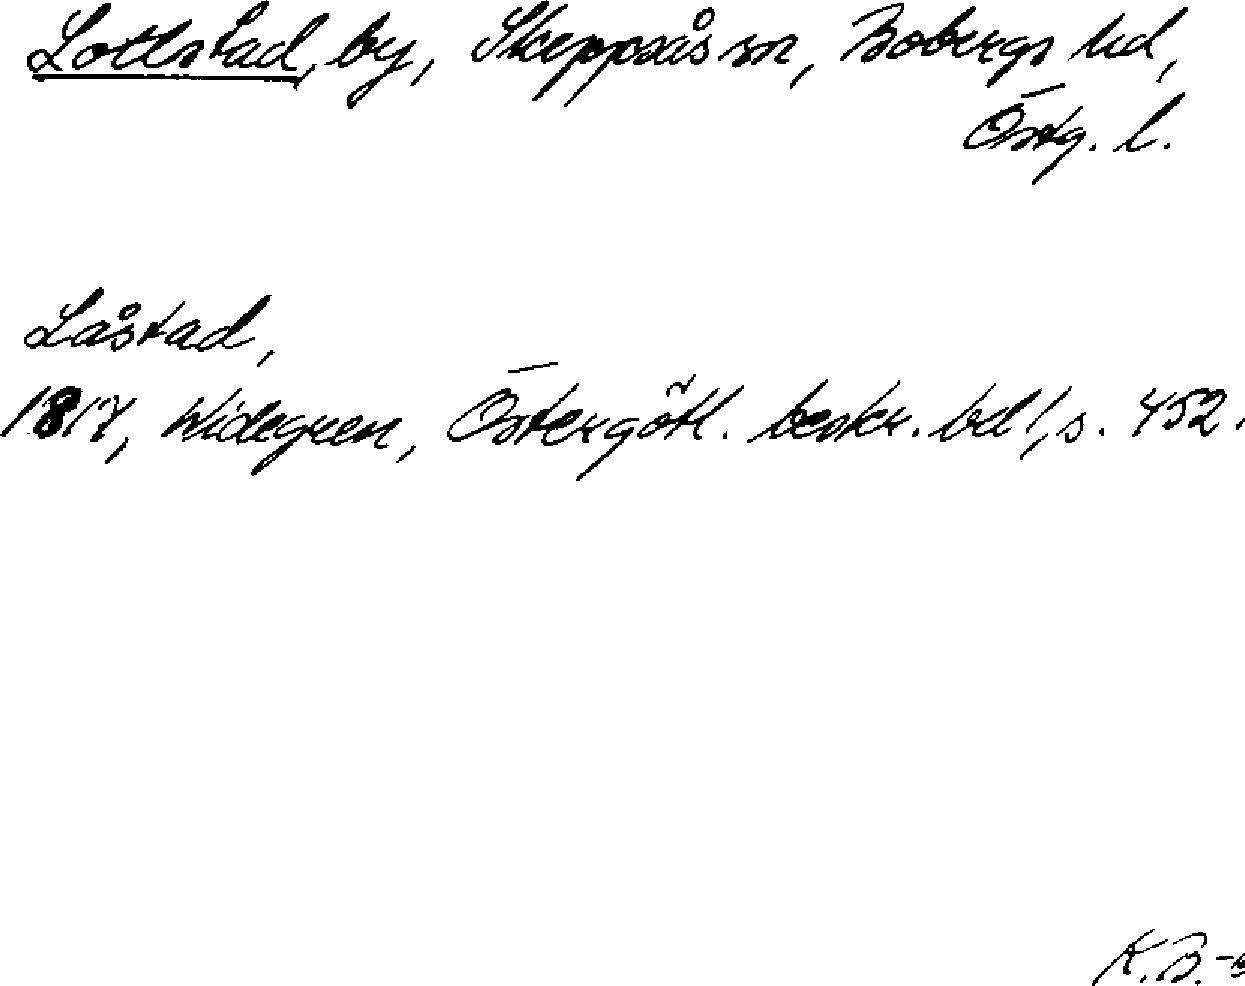 Lottstad, by, Skeppsås sn, Bobergs hd,
Östg. l.
Låstad,
1817, Widegren, Östergötl. beskr. bd 1, s. 452.
K. B.